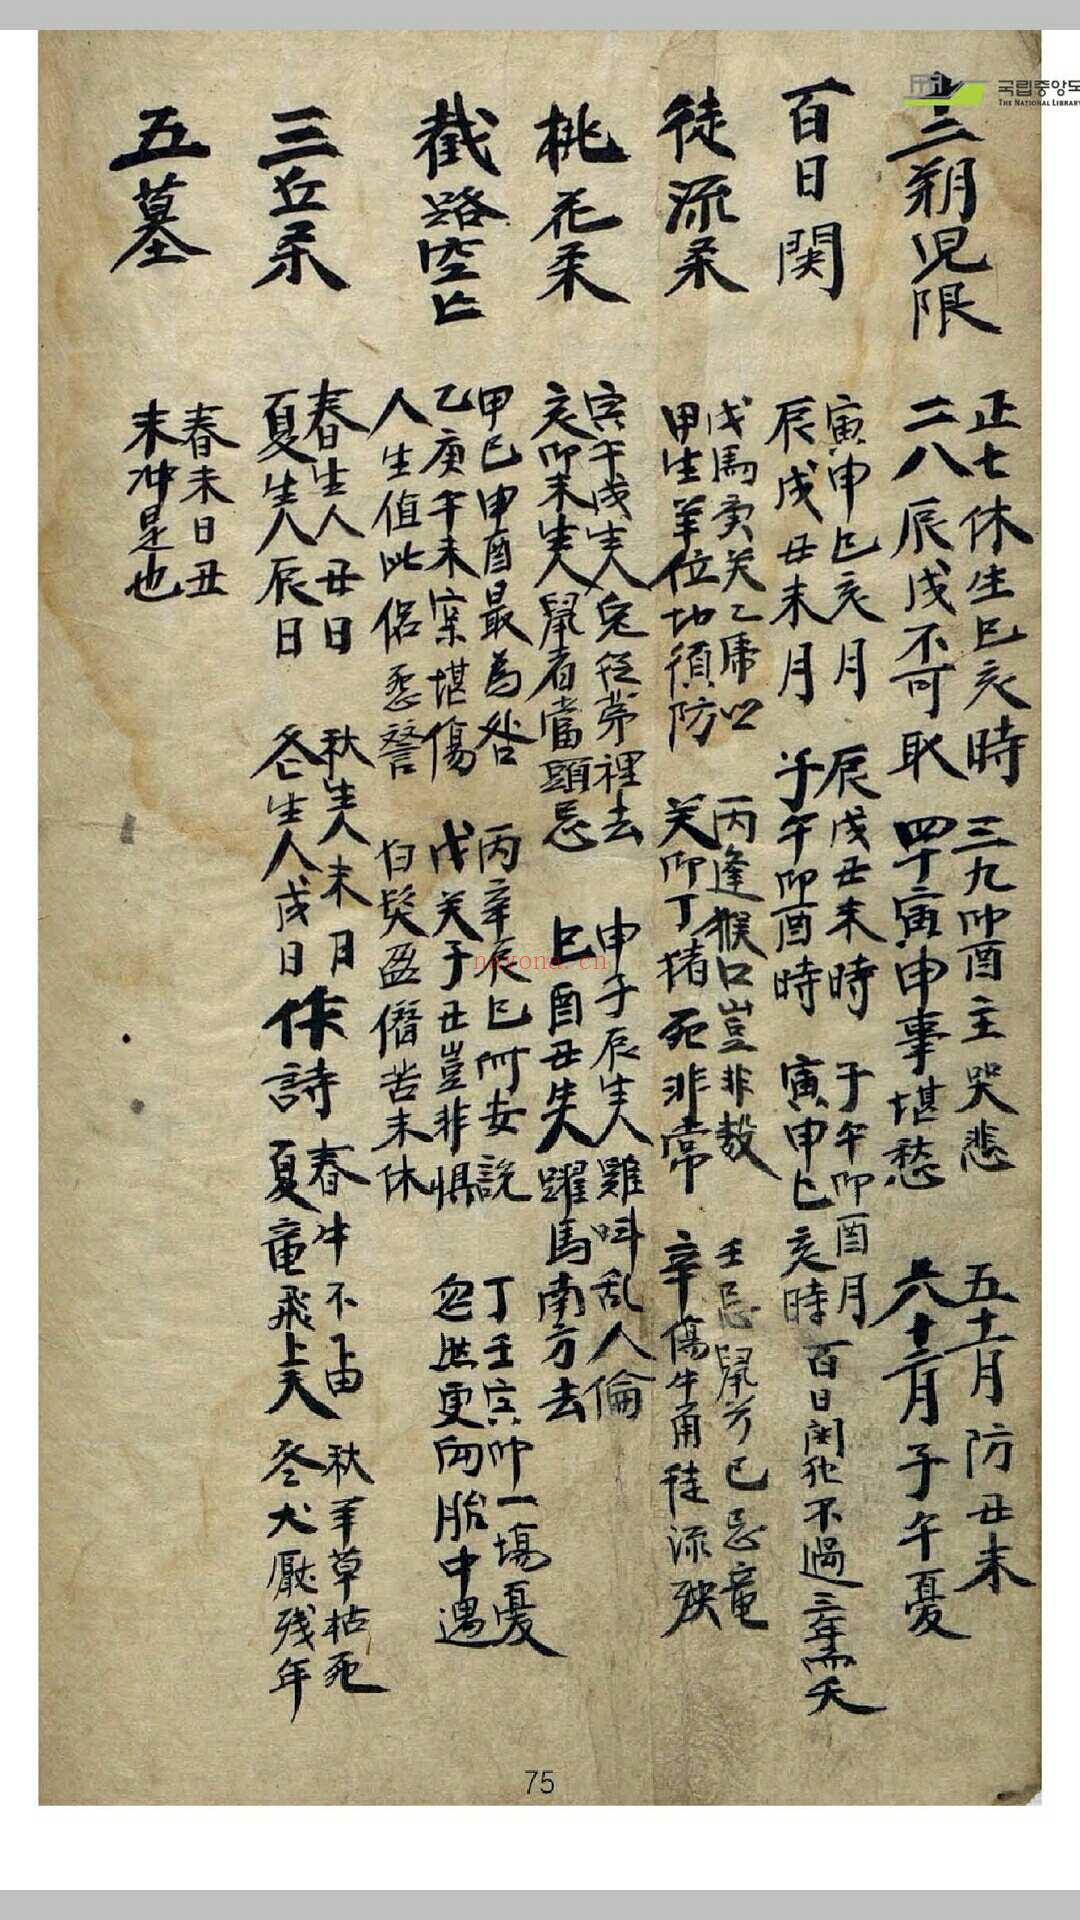 국립중앙도
THE NATIONAL LIBRARY
十二朔児限
正七休生巳亥時 三九卯酉主哭悲 五十一月防丑未
二八辰戌不可取 四十寅申事堪愁 六十二月子午憂
百日関
寅申巳亥月 辰戌丑未時 子午卯酉月
辰戌丑未月 子午卯酉時 寅申巳亥時 百日関犯不過三年而夭
徒流柔
戊馬庚关乙虎以 丙逢猴口豈非 壬忌鼠方巳忌竜
甲生羊位切須防 关卯丁猪死非常 辛傷牛角徒流殃
桃花柔
寅午戌生人兔従茅裡去 申子辰生人雞叫乱人倫
亥卯未生人鼠者當頭忌 巳酉丑生人躍馬南方去
截路空亡
甲己申酉最為咎 丙辛辰巳所妄説 丁壬寅卯一場憂
乙庚午未寀堪傷 戊关子丑豈非惧 忽然更向胎中遇
人生值此侶 白髮盈僭苦未休
三丘柔
春生人丑日 秋生人未月 作詩 春牛不上田 秋羊草枯死
夏生人辰日 冬生人戌日 夏竜飛上天 冬犬厭残年
五墓
春未日丑
末冲是也
nayona.cn
75